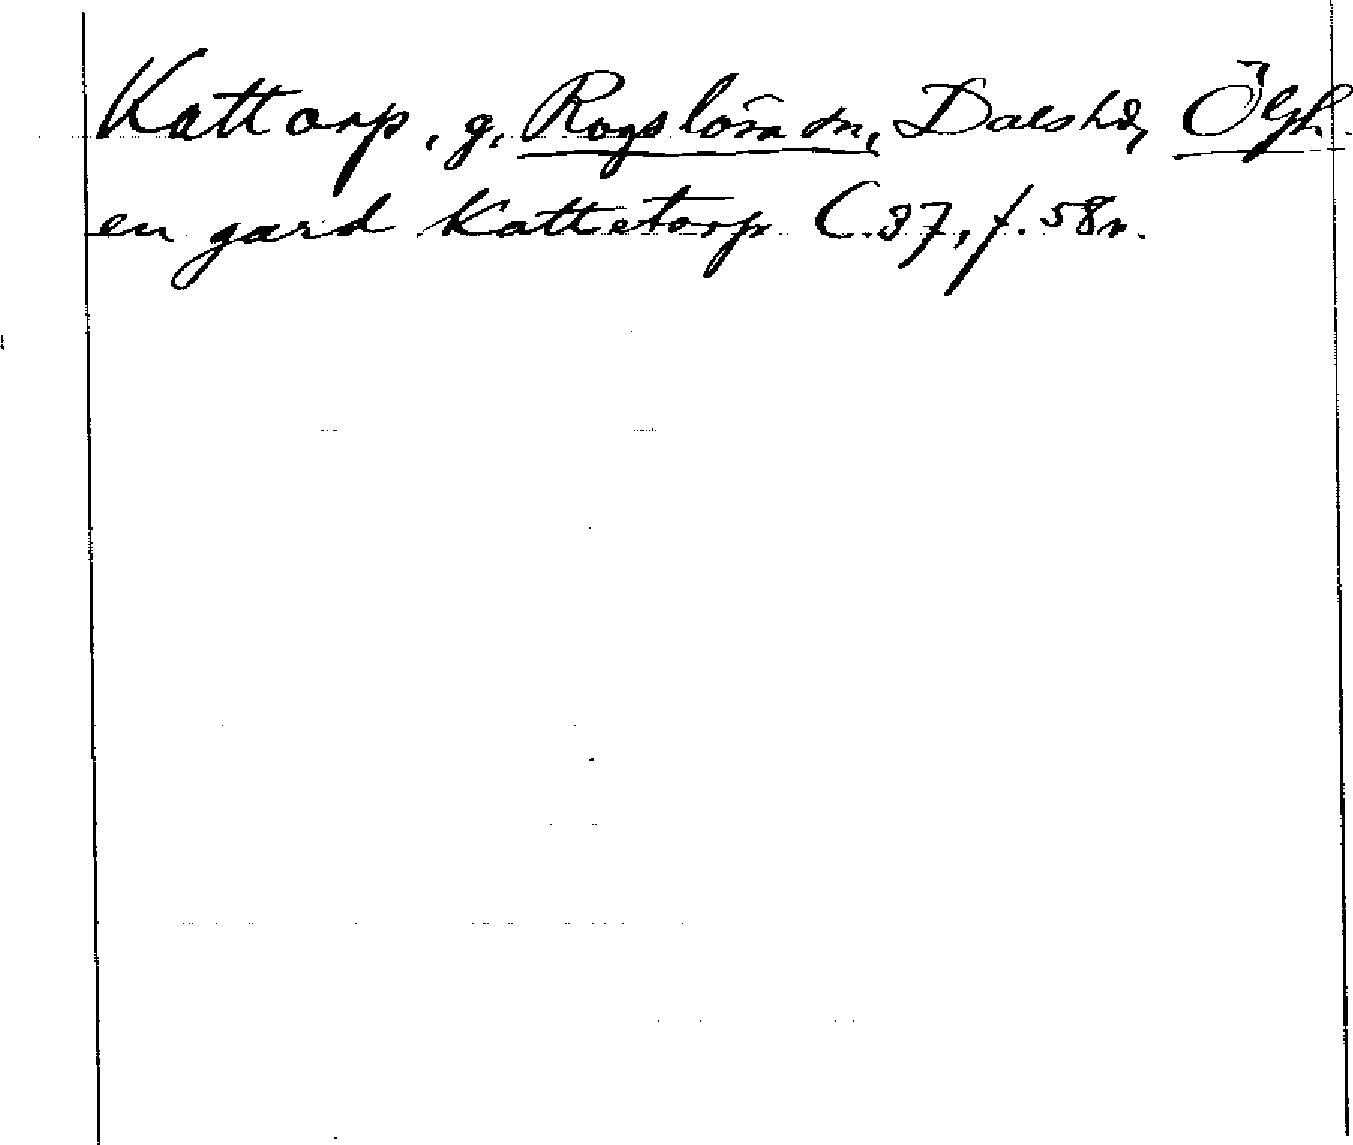 Kattorp, g, Rogslösa sn, Dals hd, Ögtl.
en gard Kattetorp C.37, f. 58r.